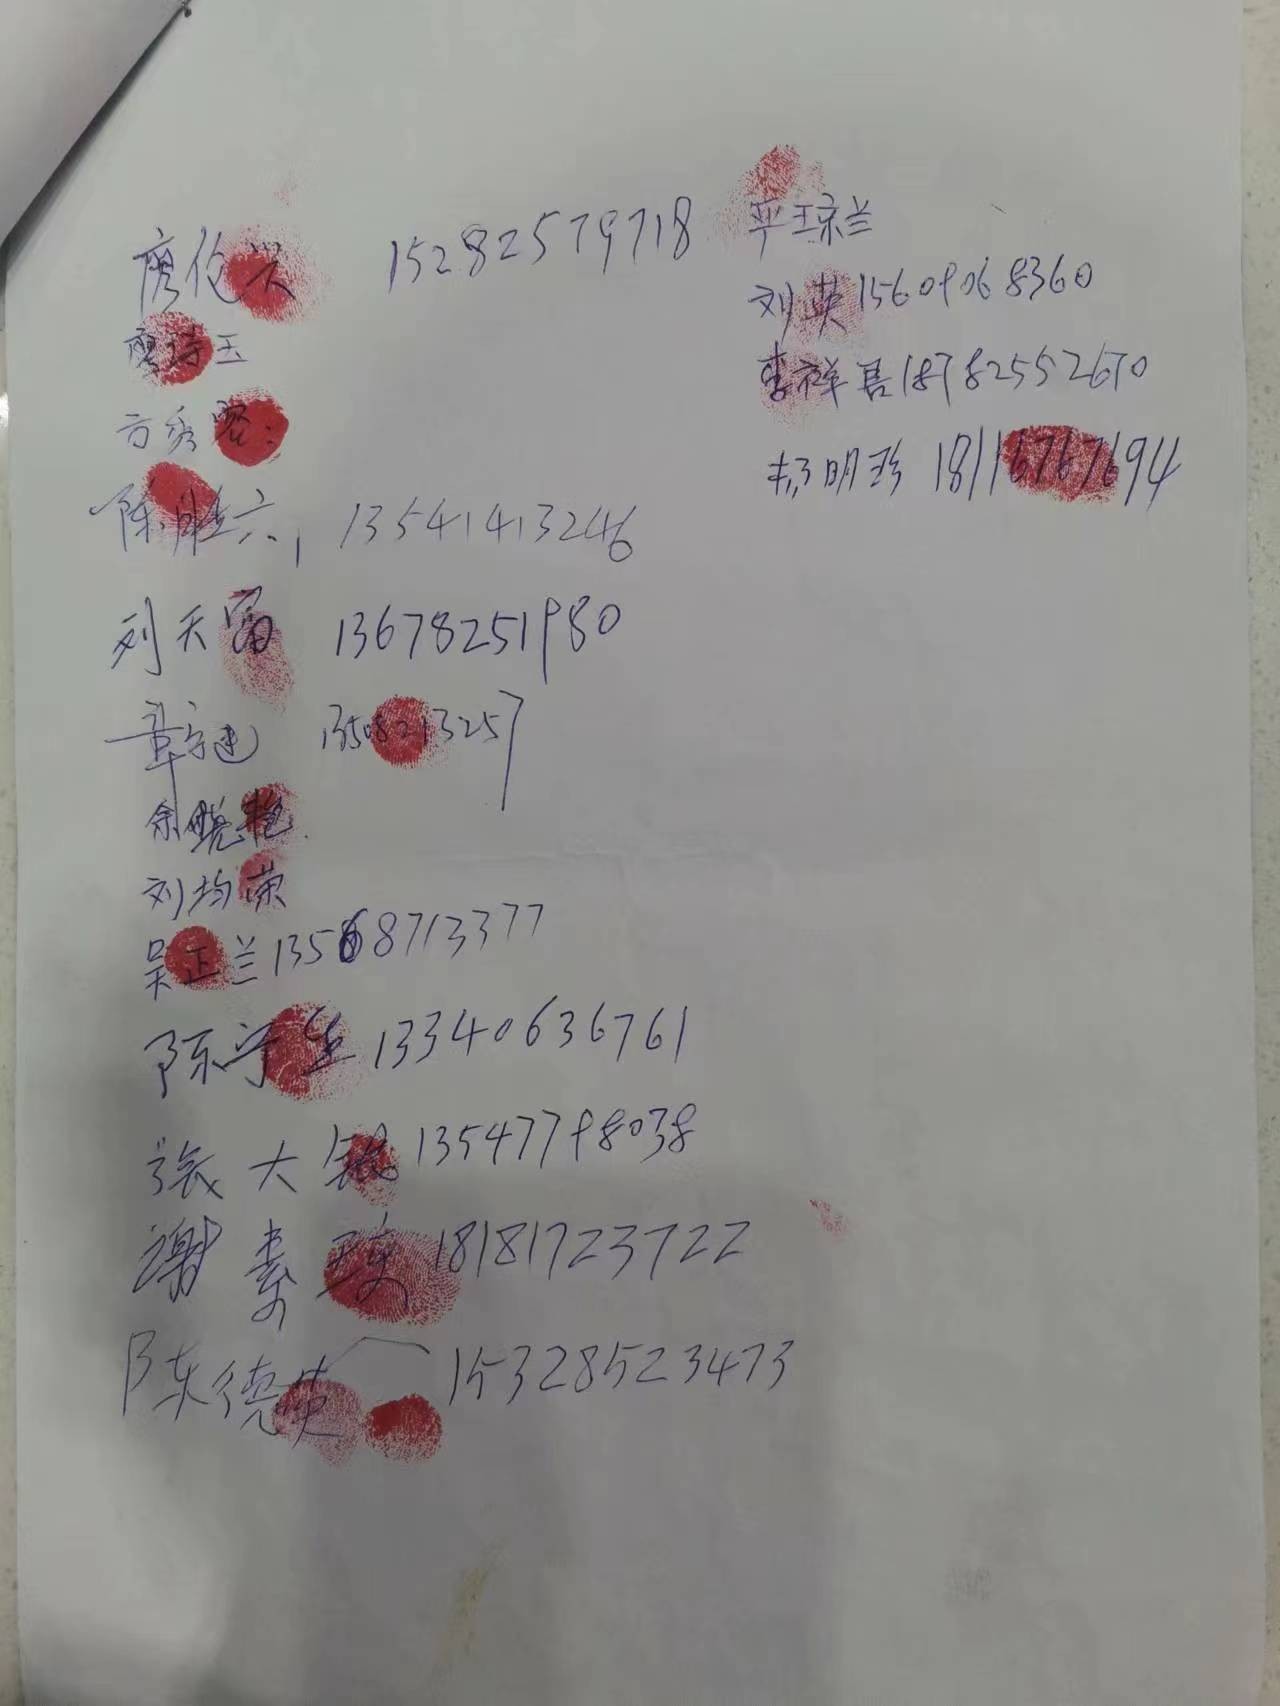 廖伦兴 15282579718
廖琼玉
方秀容:
陈胜六, 13541413246
刘天富 13678251980
章宗建 13508213257
余晓艳
刘均荣
吴正兰 13568713377
陈守生 13340636761
張大 13547798038
谢素琼 18181723722
陈德英 15328523473
平琼兰
刘英 15609068360
李祥喜 18782552670
杨明珍 18116767694